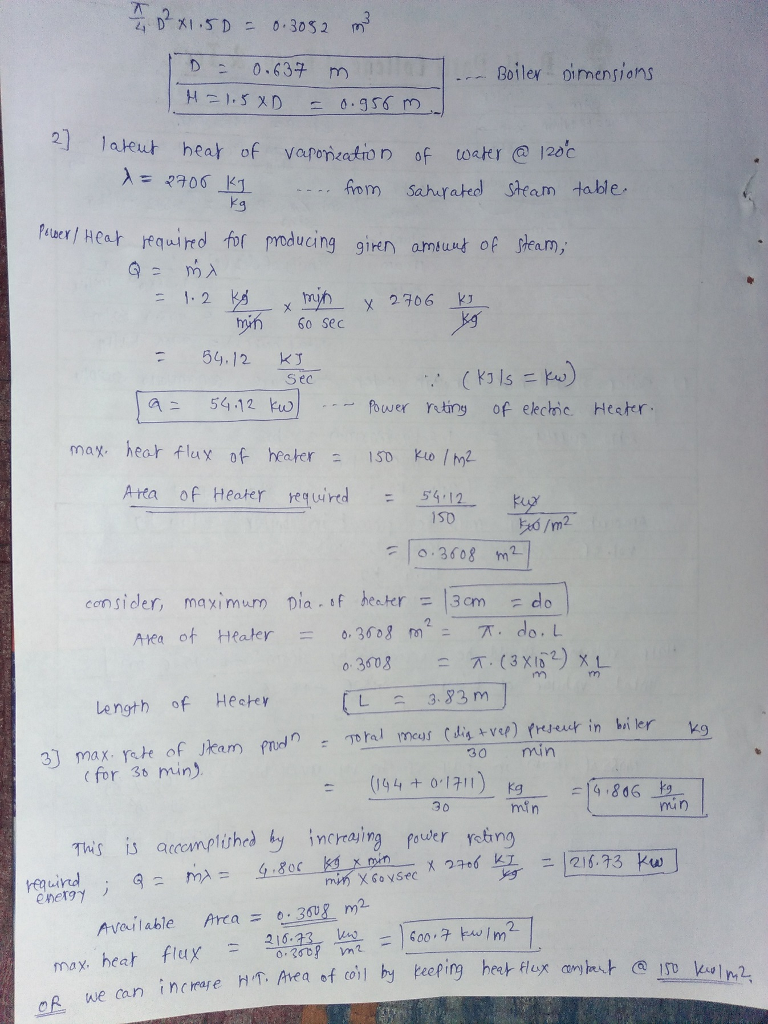 π/4 D² × 1.5 D = 0.3052 m³
D = 0.637 m
H = 1.5 × D = 0.956 m
---- Boiler Dimensions
2] latent heat of vaporization of water @ 120°c
λ = 2706 KJ/Kg ---- from saturated steam table.
Power/Heat required for producing given amount of steam;
Q = ṁλ
= 1.2 Kg/min × min/60 sec × 2706 KJ/Kg
= 54.12 KJ/sec ∵ (KJ/s = Kw)
Q = 54.12 Kw --- Power rating of electric Heater.
max. heat flux of heater = 150 Kw/m2
Area of Heater required = 54.12/150 Kw/Kw/m²
= 0.3608 m²
consider, maximum Dia. of heater = 3cm = do
Area of Heater = 0.3608 m² = π. do. L
0.3608 = π. (3×10⁻²) × L
m m
Length of Heater L = 3.83 m
3] max. rate of steam prodn = Total mass (liq + vap) present in boiler kg / 30 min
(for 30 min).
= (144 + 0.1711)/30 kg/min = 4.806 kg/min
This is accomplished by increasing power rating
required energy ; Q = ṁλ = 4.806 kg × min / min × 60 × sec × 2706 KJ/kg = 216.73 Kw
Available Area = 0.3608 m²
max. heat flux = 216.73/0.3608 Kw/m² = 600.7 Kw/m²
OR we can increase H.T. Area of coil by keeping heat flux constant @ 150 Kw/m².